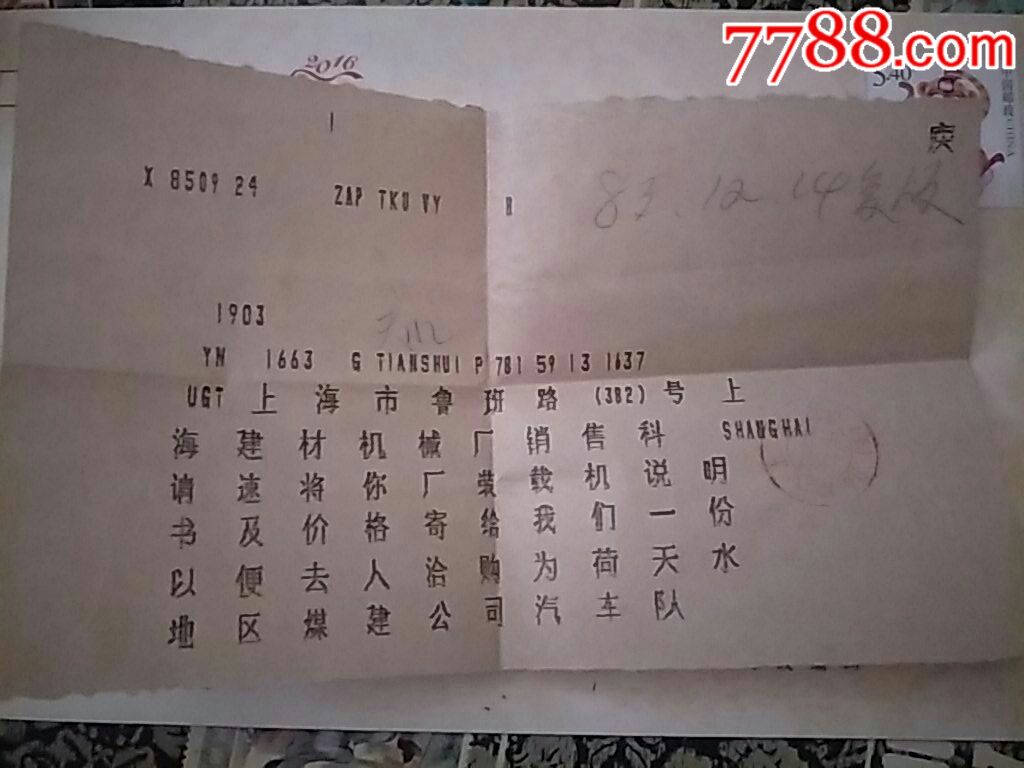 7788.com
2016
5.40
中国邮政 CHINA
X 8509 24 ZAP TKU VY H
83.12.14
1903
天水
YN 1663 G TIANSHUI P 781 59 13 1637
UGT 上海市鲁班路(382)号上
海建材机械厂销售科 SHANGHAI
请速将你厂装载机说明
书及价格寄给我们一份
以便去人洽购为荷天水
地区煤建公司汽车队